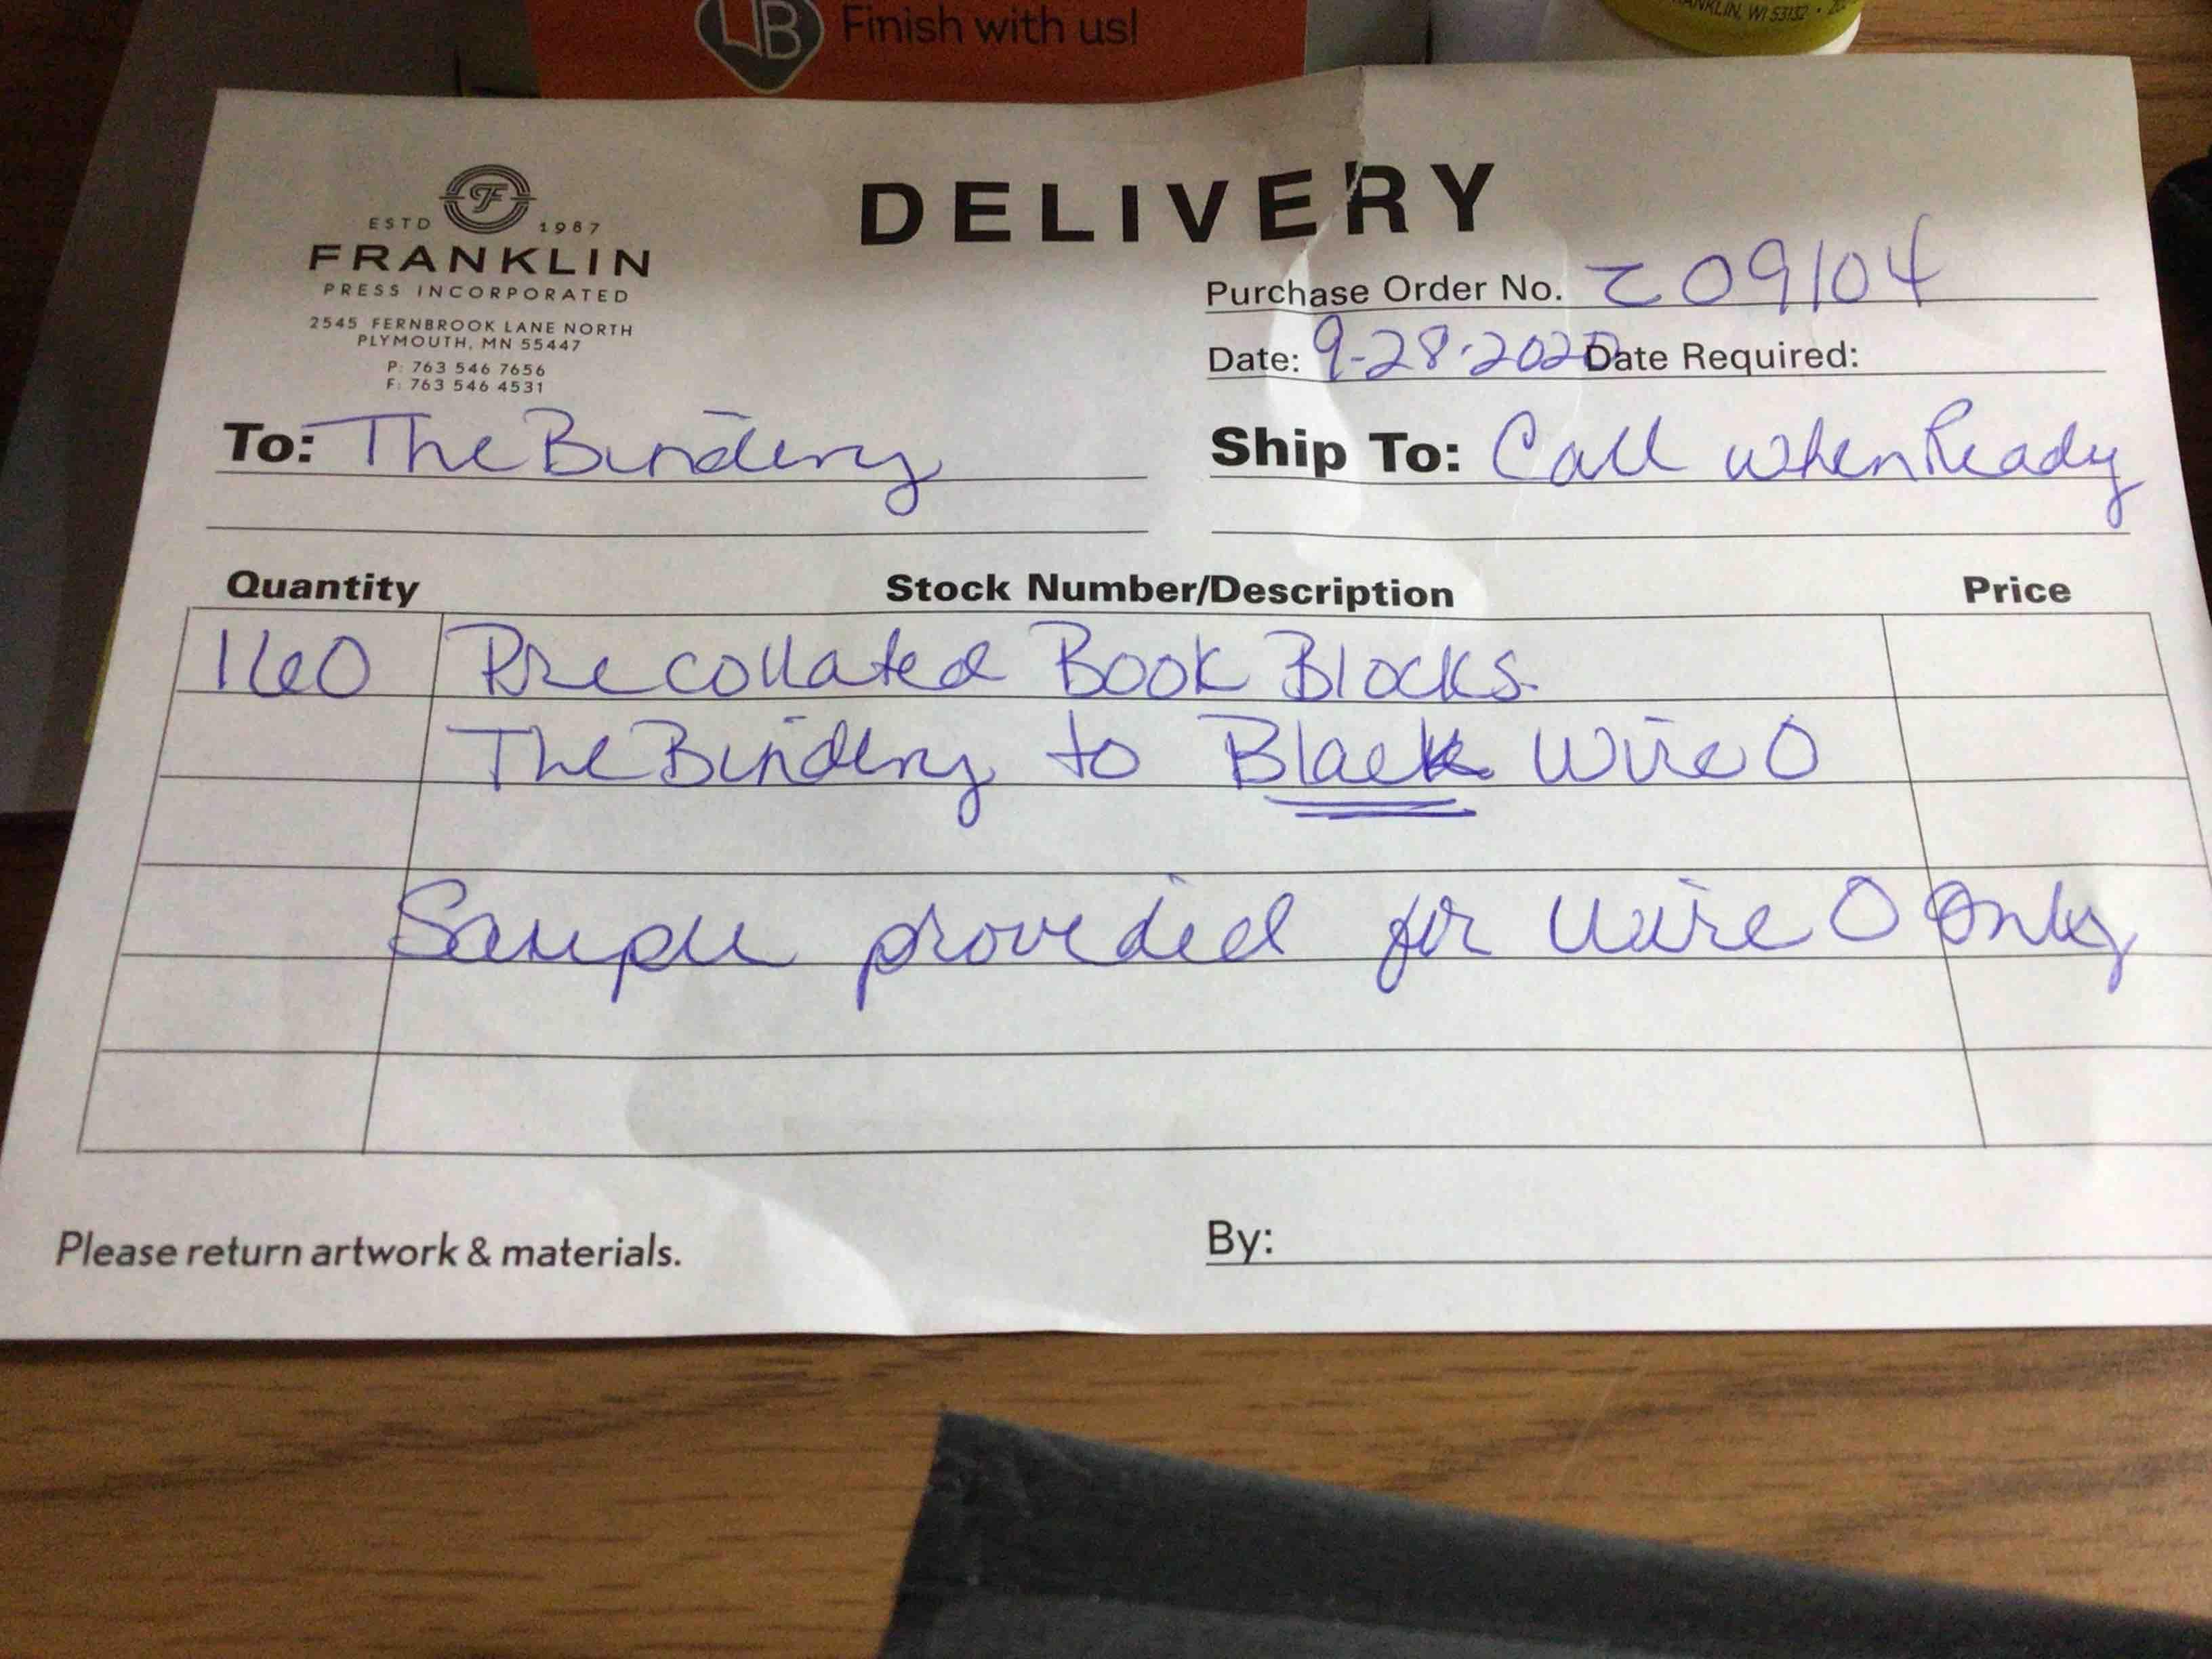 UB Finish with us!
FRANKLIN, WI 53132
DELIVERY
ESTD F 1987
FRANKLIN
PRESS INCORPORATED
2545 FERNBROOK LANE NORTH
PLYMOUTH, MN 55447
P: 763 546 7656
F: 763 546 4531
Purchase Order No. 209104
Date: 9-28-2020 Date Required:
To: The Bindery
Ship To: Call when Ready
Quantity Stock Number/Description Price
160 Precollated Book Blocks.
The Bindery to Black Wire O
Sample provided for Wire O Only
Please return artwork & materials.
By: